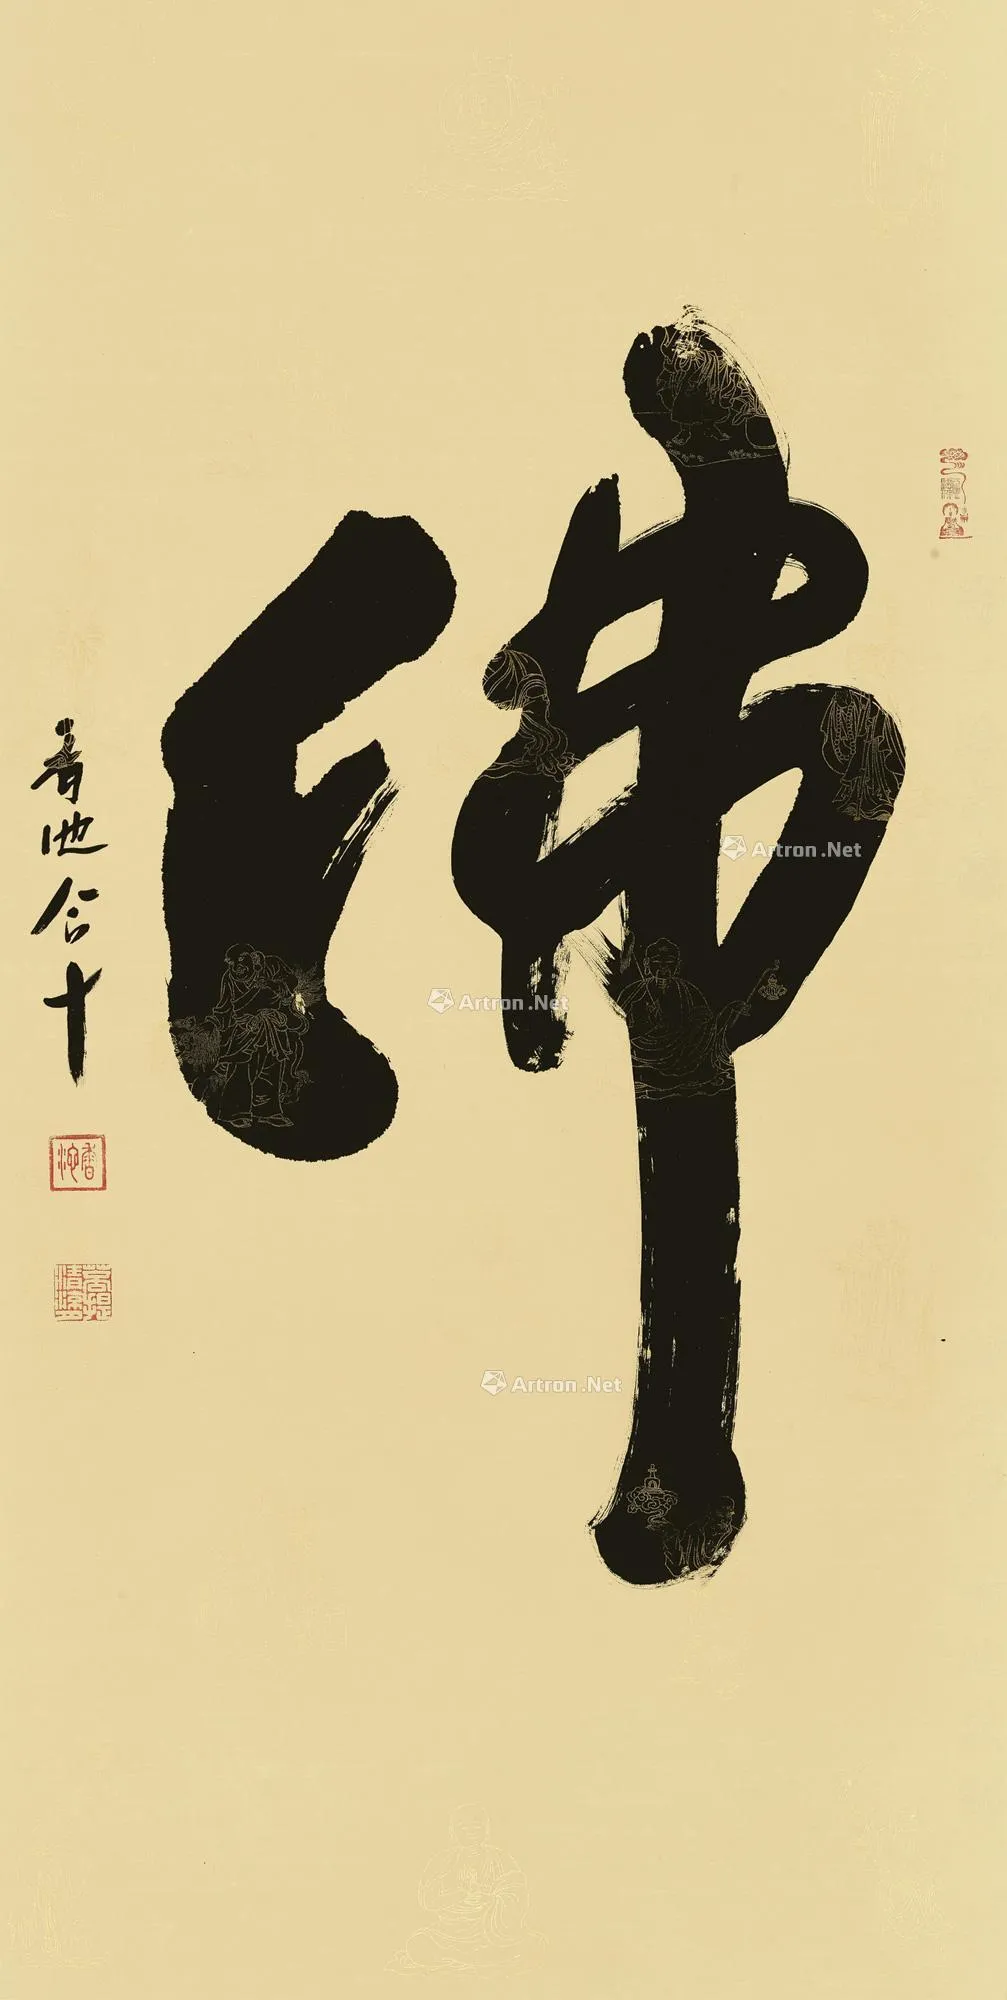 佛
香池合十
香池
Artron.Net
Artron.Net
Artron.Net